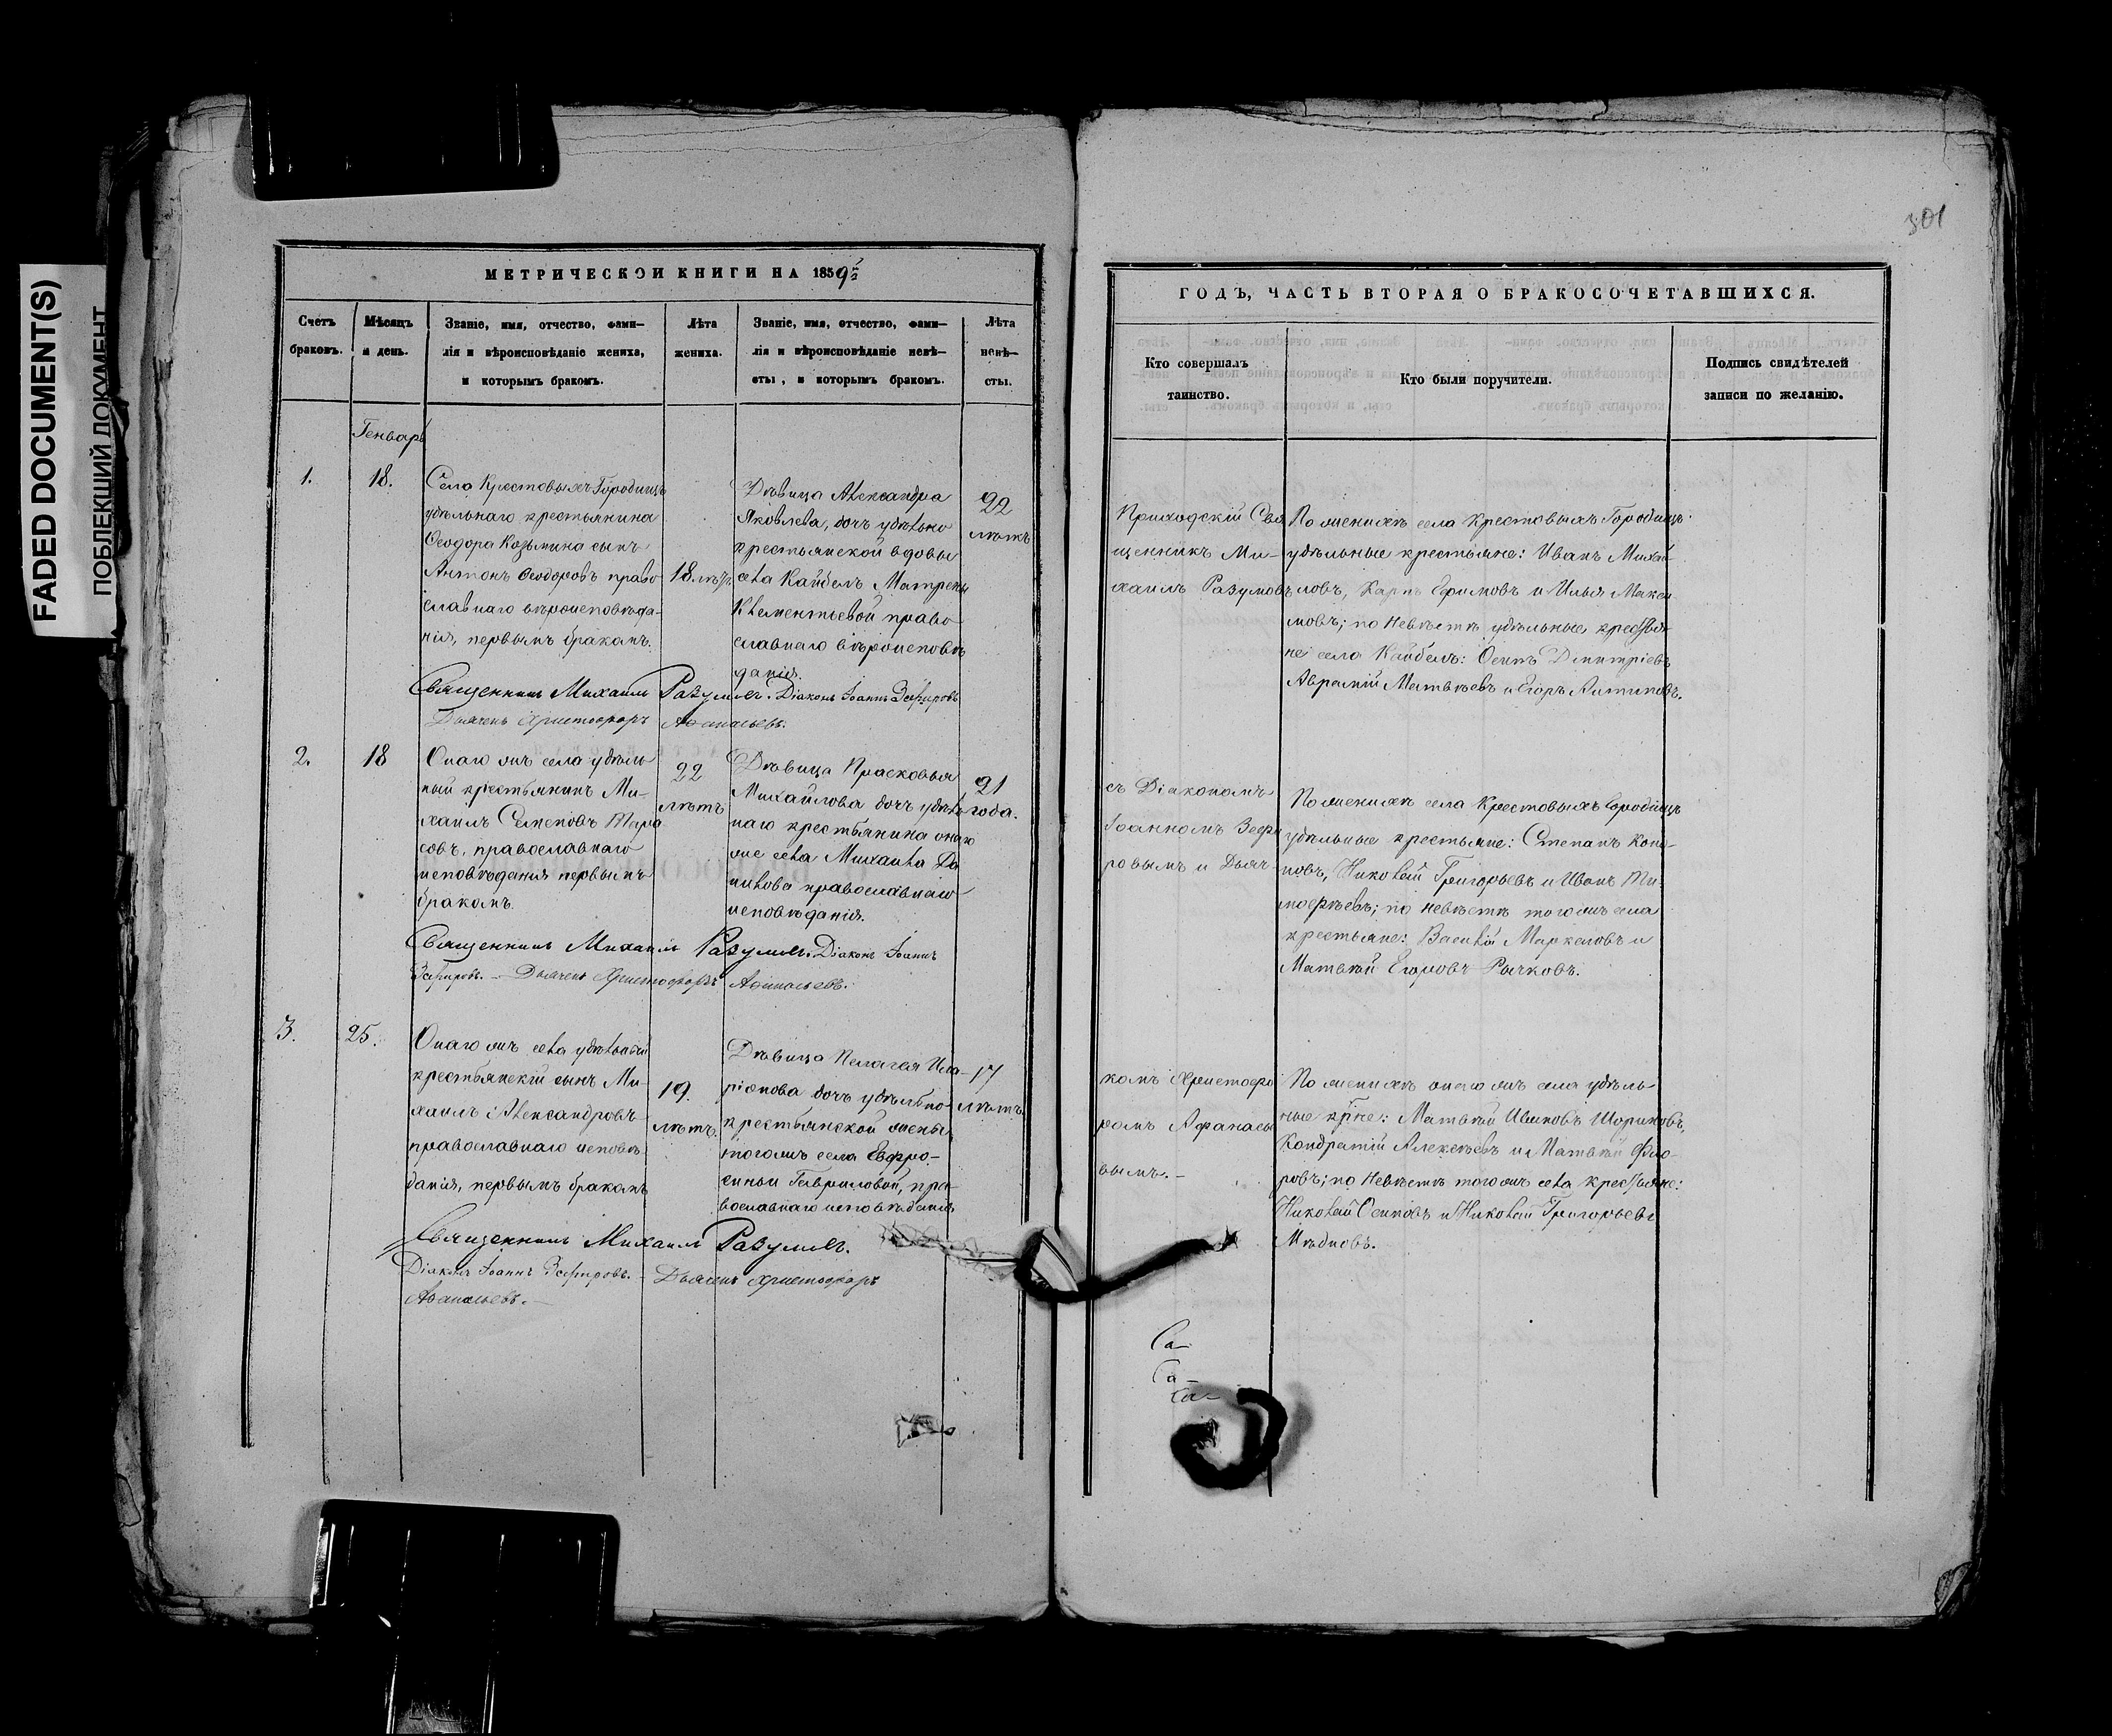 FADED DOCUMENT(S)
ПОБЛЕКШИЙ ДОКУМЕНТ
МЕТРИЧЕСКОЙ КНИГИ НА 1859й
Счетъ
браковъ.
Мѣсяцъ
и день.
Званіе, имя, отчество, фами-
лія и вѣроисповѣданіе жениха,
и которымъ бракомъ.
Лѣта
жениха.
Званіе, имя, отчество, фами-
лія и вѣроисповѣданіе невѣ-
сты, и которымъ бракомъ.
Лѣта
невѣ-
сты.
Генварь
1.
18.
Села Крестовыхъ Городищъ
удѣльнаго крестьянина
Ѳеодора Козьмина сынъ
Антонъ Ѳеодоровъ право
славнаго вѣроисповѣда-
нія, первымъ бракомъ.
18. лѣтъ
Дѣвица Александра
Яковлева, дочь удѣльно
крестьянской вдовы
села Кайбелъ Матрены
Клементьевой право
славнаго вѣроисповѣ
данія.
22
лѣтъ
Священникъ Михаилъ Разумовъ. Діаконъ Іоаннъ Зефировъ
Дьячекъ Христофоръ Аѳанасьевъ.
2.
18
Онаго жъ села удѣль
ный крестьянинъ Ми-
хаилъ Семеновъ Тара
совъ, православнаго
исповѣданія первымъ
бракомъ.
22
лѣтъ
Дѣвица Прасковья
Михайлова дочь удѣль
наго крестьянина онаго
же села Михаила Да
нилова православнаго
исповѣданія.
21
года.
Священникъ Михаилъ Разумовъ. Діаконъ Іоаннъ
Зефировъ. – Дьячекъ Христофоръ Аѳанасьевъ.
3.
25.
Онаго жъ села удѣльный
крестьянскій сынъ Ми-
хаилъ Александровъ
православнаго исповѣ
данія, первымъ бракомъ
19.
лѣтъ.
Дѣвица Пелагея Ила-
ріонова дочь удѣльно-
крестьянской жены
тогожъ села Евфро-
синьи Гавриловой, пра-
вославнаго исповѣданія
17
лѣтъ.
Священникъ Михаилъ Разумовъ.
Діаконъ Іоаннъ Зефировъ. – Дьячекъ Христофоръ
Аѳанасьевъ. –
301
ГОДЪ, ЧАСТЬ ВТОРАЯ О БРАКОСОЧЕТАВШИХСЯ.
Кто совершалъ
таинство.
Кто были поручители.
Подпись свидѣтелей
записи по желанію.
Приходскій Свя
щенникъ Ми-
хаилъ Разумовъ
По женихѣ села Крестовыхъ Городищъ
удѣльные крестьяне: Иванъ Михай
ловъ, Карпъ Ефимовъ и Илья Макси
мовъ; по невѣстѣ удѣльные крестья
не села Кайбелъ: Осипъ Дмитріевъ
Аврамій Матвѣевъ и Егоръ Антиповъ.
съ Діакономъ
Іоанномъ Зефи
ровымъ и Дьяч-
По женихѣ села Крестовыхъ Городищъ
удѣльные крестьяне: Степанъ Коно-
новъ, Николай Григорьевъ и Иванъ Ти-
мофѣевъ; по невѣстѣ тогожъ села
крестьяне: Василій Маркеловъ и
Матвѣй Егоровъ Рычковъ.
комъ Христофо
ромъ Афанасье
вымъ. –
По женихѣ онаго жъ села удѣль
ные кр̃не: Матвѣй Ивановъ Шориновъ,
Кондратій Алексѣевъ и Матвѣй Фло-
ровъ; по невѣстѣ тогожъ села крестьяне:
Николай Осиповъ и Николай Григорьевъ
Мѣдновъ.
Са-
Са-
Са-